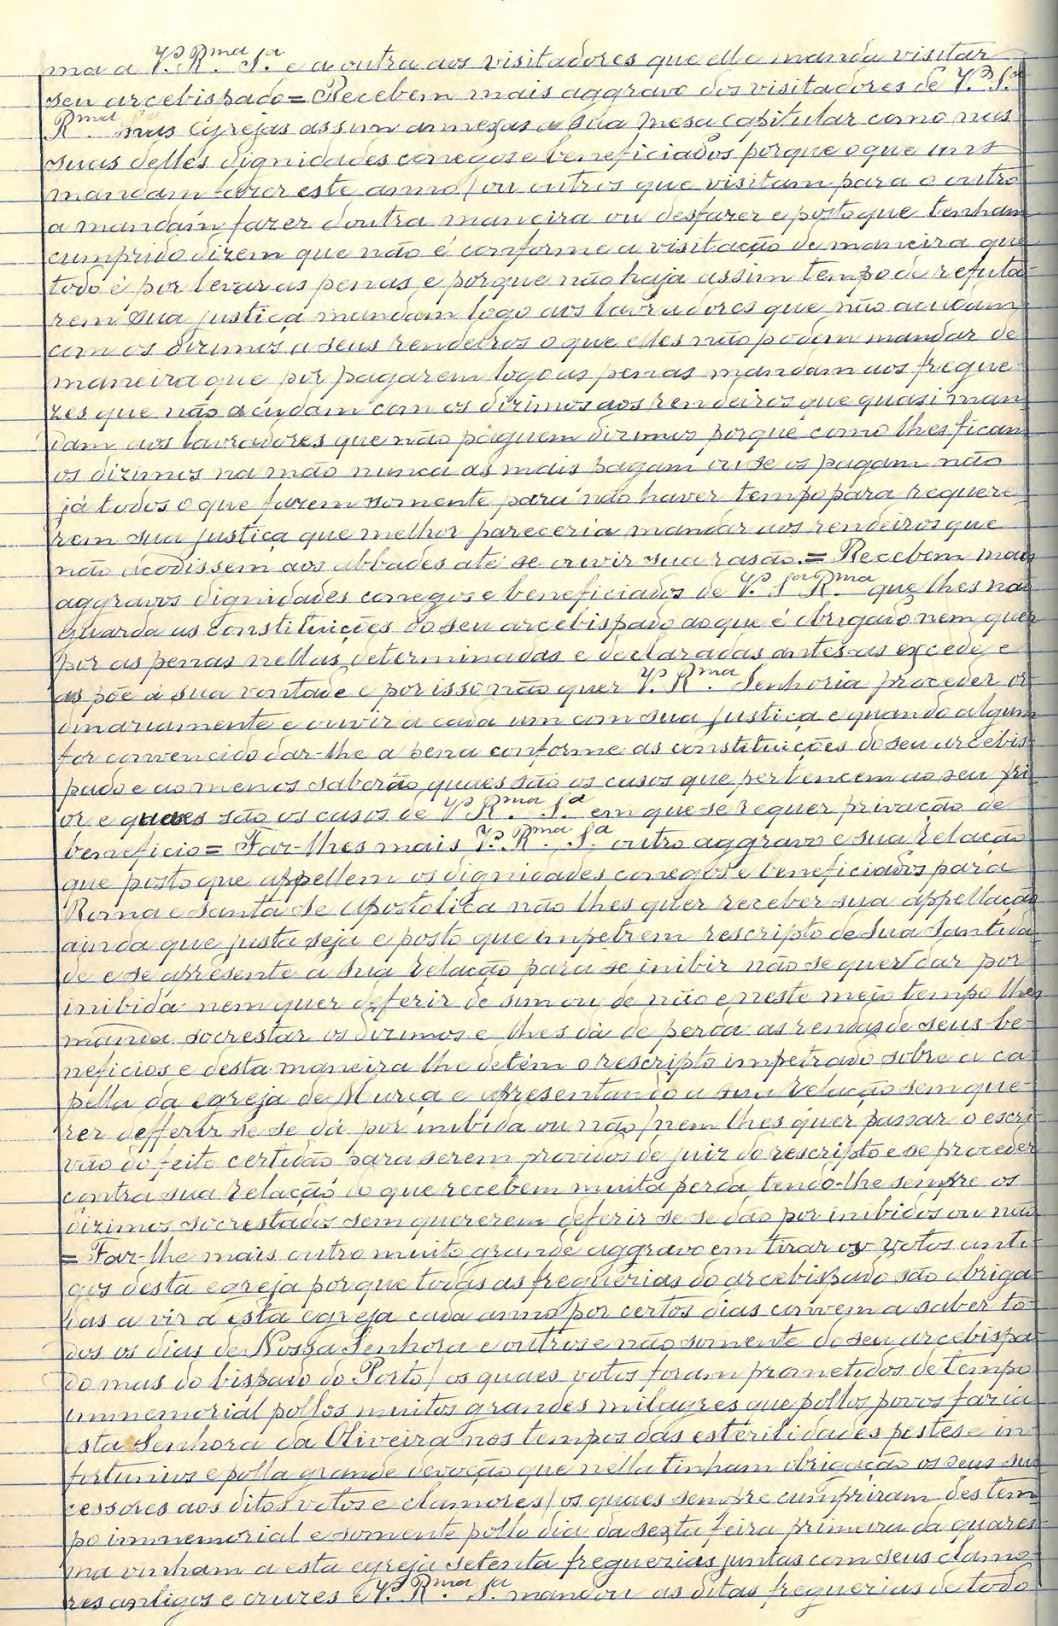 ma a V.ª R.ma S.ª e a outra aos visitadores que elle manda visitar
seu arcebispado = Recebem mais aggravo dos visitadores de V.ª S.ª
R.ma nas egrejas assim annexas a sua mesa capitular como nas
suas delles dignidades conegos e beneficiados porque o que uns
mandam fazer este anno / ou outros que visitam para o outro
a mandam fazer doutra maneira ou desfazer e posto que tenham
cumprido dizem que não é conforme a visitação de maneira que
todo é por levar as penas e porque não haja assim tempo de refuta-
rem sua justiça mandam logo aos lavradores que não acudam
com os dizimos a seus rendeiros o que elles não podem mandar de
maneira que por pagarem logo as penas mandam aos fregue-
zes que não acudam com os dizimos aos rendeiros que quasi man
dam aos lavradores que não paguem dizimos porque como lhes ficam
os dizimos na mão nunca as mais pagam ou se os pagam não
já todos o que fazem somente para não haver tempo para requere-
rem sua justiça que melhor pareceria mandar aos rendeiros que
não acodissem aos abbades até se ouvir sua rasão. = Recebem mais
aggravos dignidades conegos e beneficiados de V.ª S.ª R.ma que lhes não
guarda as constituições do seu arcebispado ao que é obrigado nem quer
por as penas nellas determinadas e declaradas antes as excede e
as põe á sua vontade e por isso não quer V.ª R.ma Senhoria proceder or
dinariamente e ouvir a cada um com sua justiça e quando algum
for convencido dar-lhe a pena conforme as constituições do seu arcebis-
pado e ao menos saberão quaes são os casos que pertencem ao seu pri
or e quaes são os casos de V.ª R.ma S.ª em que se requer privação de
beneficio = Faz-lhes mais V.ª R.ma S.ª outro aggravo e sua relação
que posto que appellem os dignidades conegos e beneficiados para
Roma e Santa Sé Apostolica não lhes quer receber sua appellação
ainda que justa seja e posto que impetrem rescripto de Sua Santida
de e se apresente a sua relação para se inibir não se quer dar por
inibida nem quer deferir de sim ou de não e neste meio tempo lhes
manda socrestar os dizimos e lhes dá de perda as rendas de seus be-
neficios e desta maneira lhe detém o rescripto impetrado sobre a ca
pella da egreja de Murça e apresentando a sua relação sem que-
rer defferir se se dá por inibida ou não / nem lhes quer passar o escri
vão do feito certidão para serem providos de juiz do rescripto e se proceder
contra sua relação do que recebem muita perda tendo-lhe sempre os
dizimos socrestados sem quererem deferir se se dão por inibidos ou não
= Faz-lhe mais outro muito grande aggravo em tirar os votos anti-
gos desta egreja porque todas as freguezias do arcebispado são obriga-
das a vir a esta egreja cada anno por certos dias convem a saber to-
dos os dias de Nossa Senhora e outros e não somente do seu arcebispa-
do mas do bispado do Porto / os quaes votos foram prometidos de tempo
immemorial pollos muitos grandes milagres que pollos povos fazia
esta Senhora da Oliveira nos tempos das esterilidades pestes e in
fortunios e polla grande devoção que nella tinham obrigação os seus suc
cessores aos ditos votos e clamores / os quaes sempre cumpriram des tem
po immemorial e somente pollo dia da sexta feira primeira da quares-
ma vinham a esta egreja setenta freguezias juntas com seus clamo-
res antigos e cruzes e V.ª R.ma S.ª mandou as ditas freguezias de todo